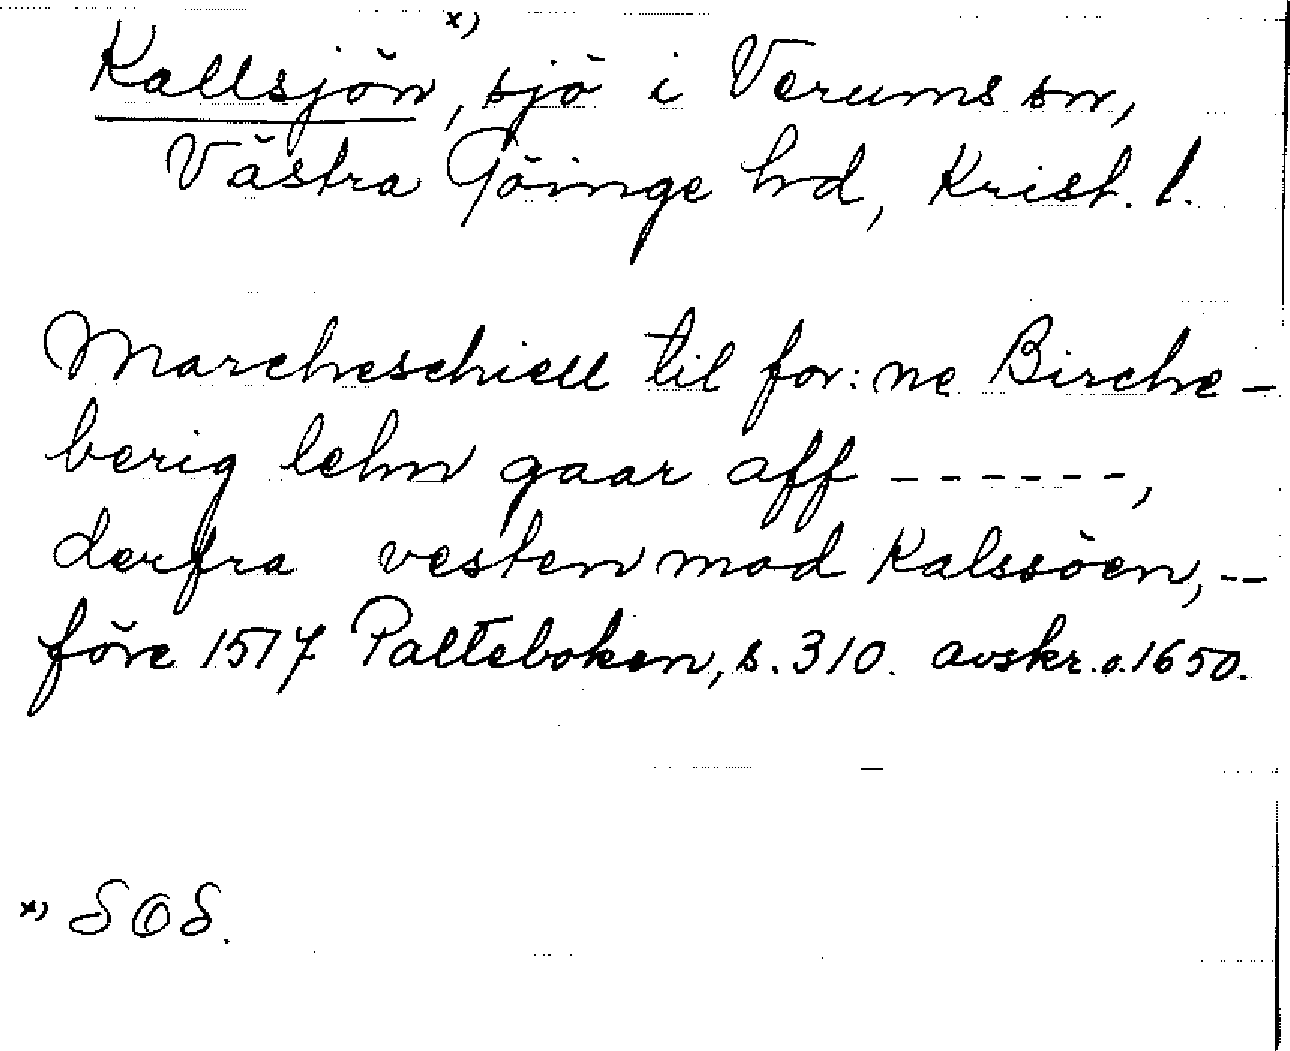 Kallsjön x), sjö i Verums sn,
Västra Göinge hd, Krist. l.
Marcheschiell til for:ne Birche-
berig lehn gaar aff ------,
derfra vesten mod Kalssöen, --
före 1517 Palteboken, s. 310. avskr. o. 1650.
x) SOS.